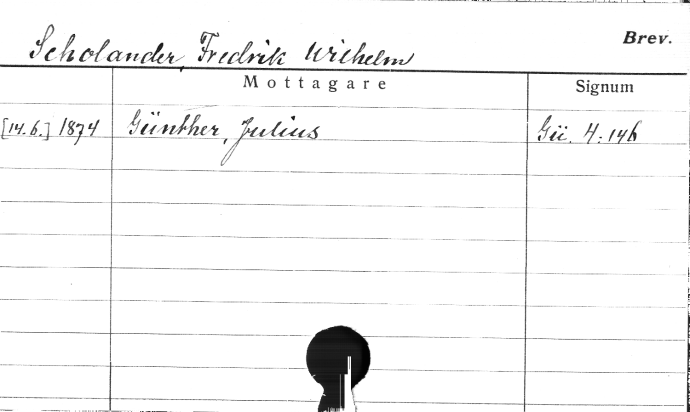 Scholander, Fredrik Wilhelm Brev.
Mottagare Signum
[14.6.] 1874 Günther, Julius Gü. 4:146